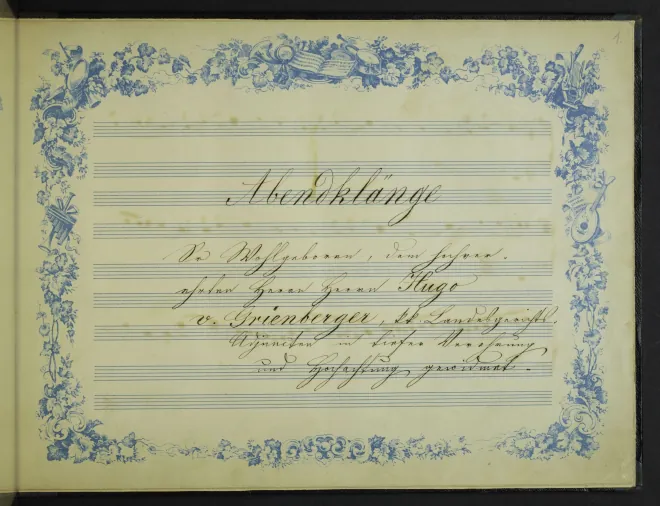 1.
Abendklänge
Sr Wohlgeboren, dem hochver-
ehrten Herrn Herrn Hugo
v. Grienberger, kk. Landesgerichts-
Adjuncten in tiefer Verehrung
und Hochachtung gewidmet.